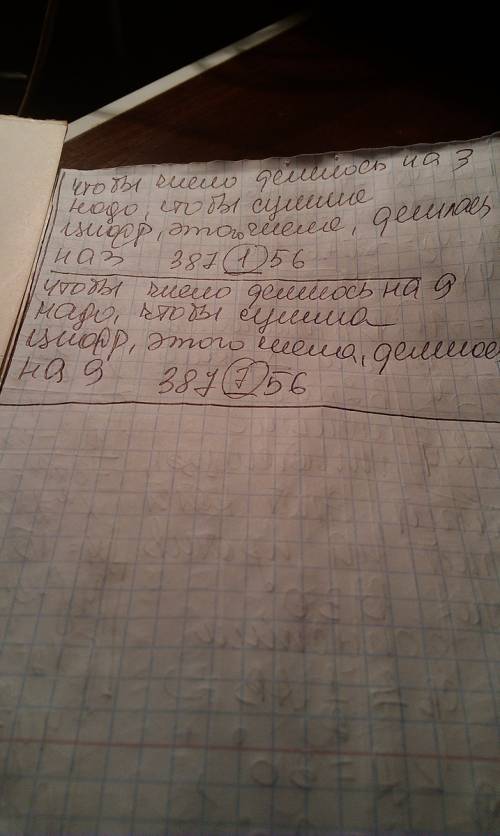 чтобы число делилось на 3
надо, чтобы сумма
цифр, этого числа, делилась
на 3 387 1 56
чтобы число делилось на 9
надо, чтобы сумма
цифр, этого числа, делилась
на 9 387 7 56